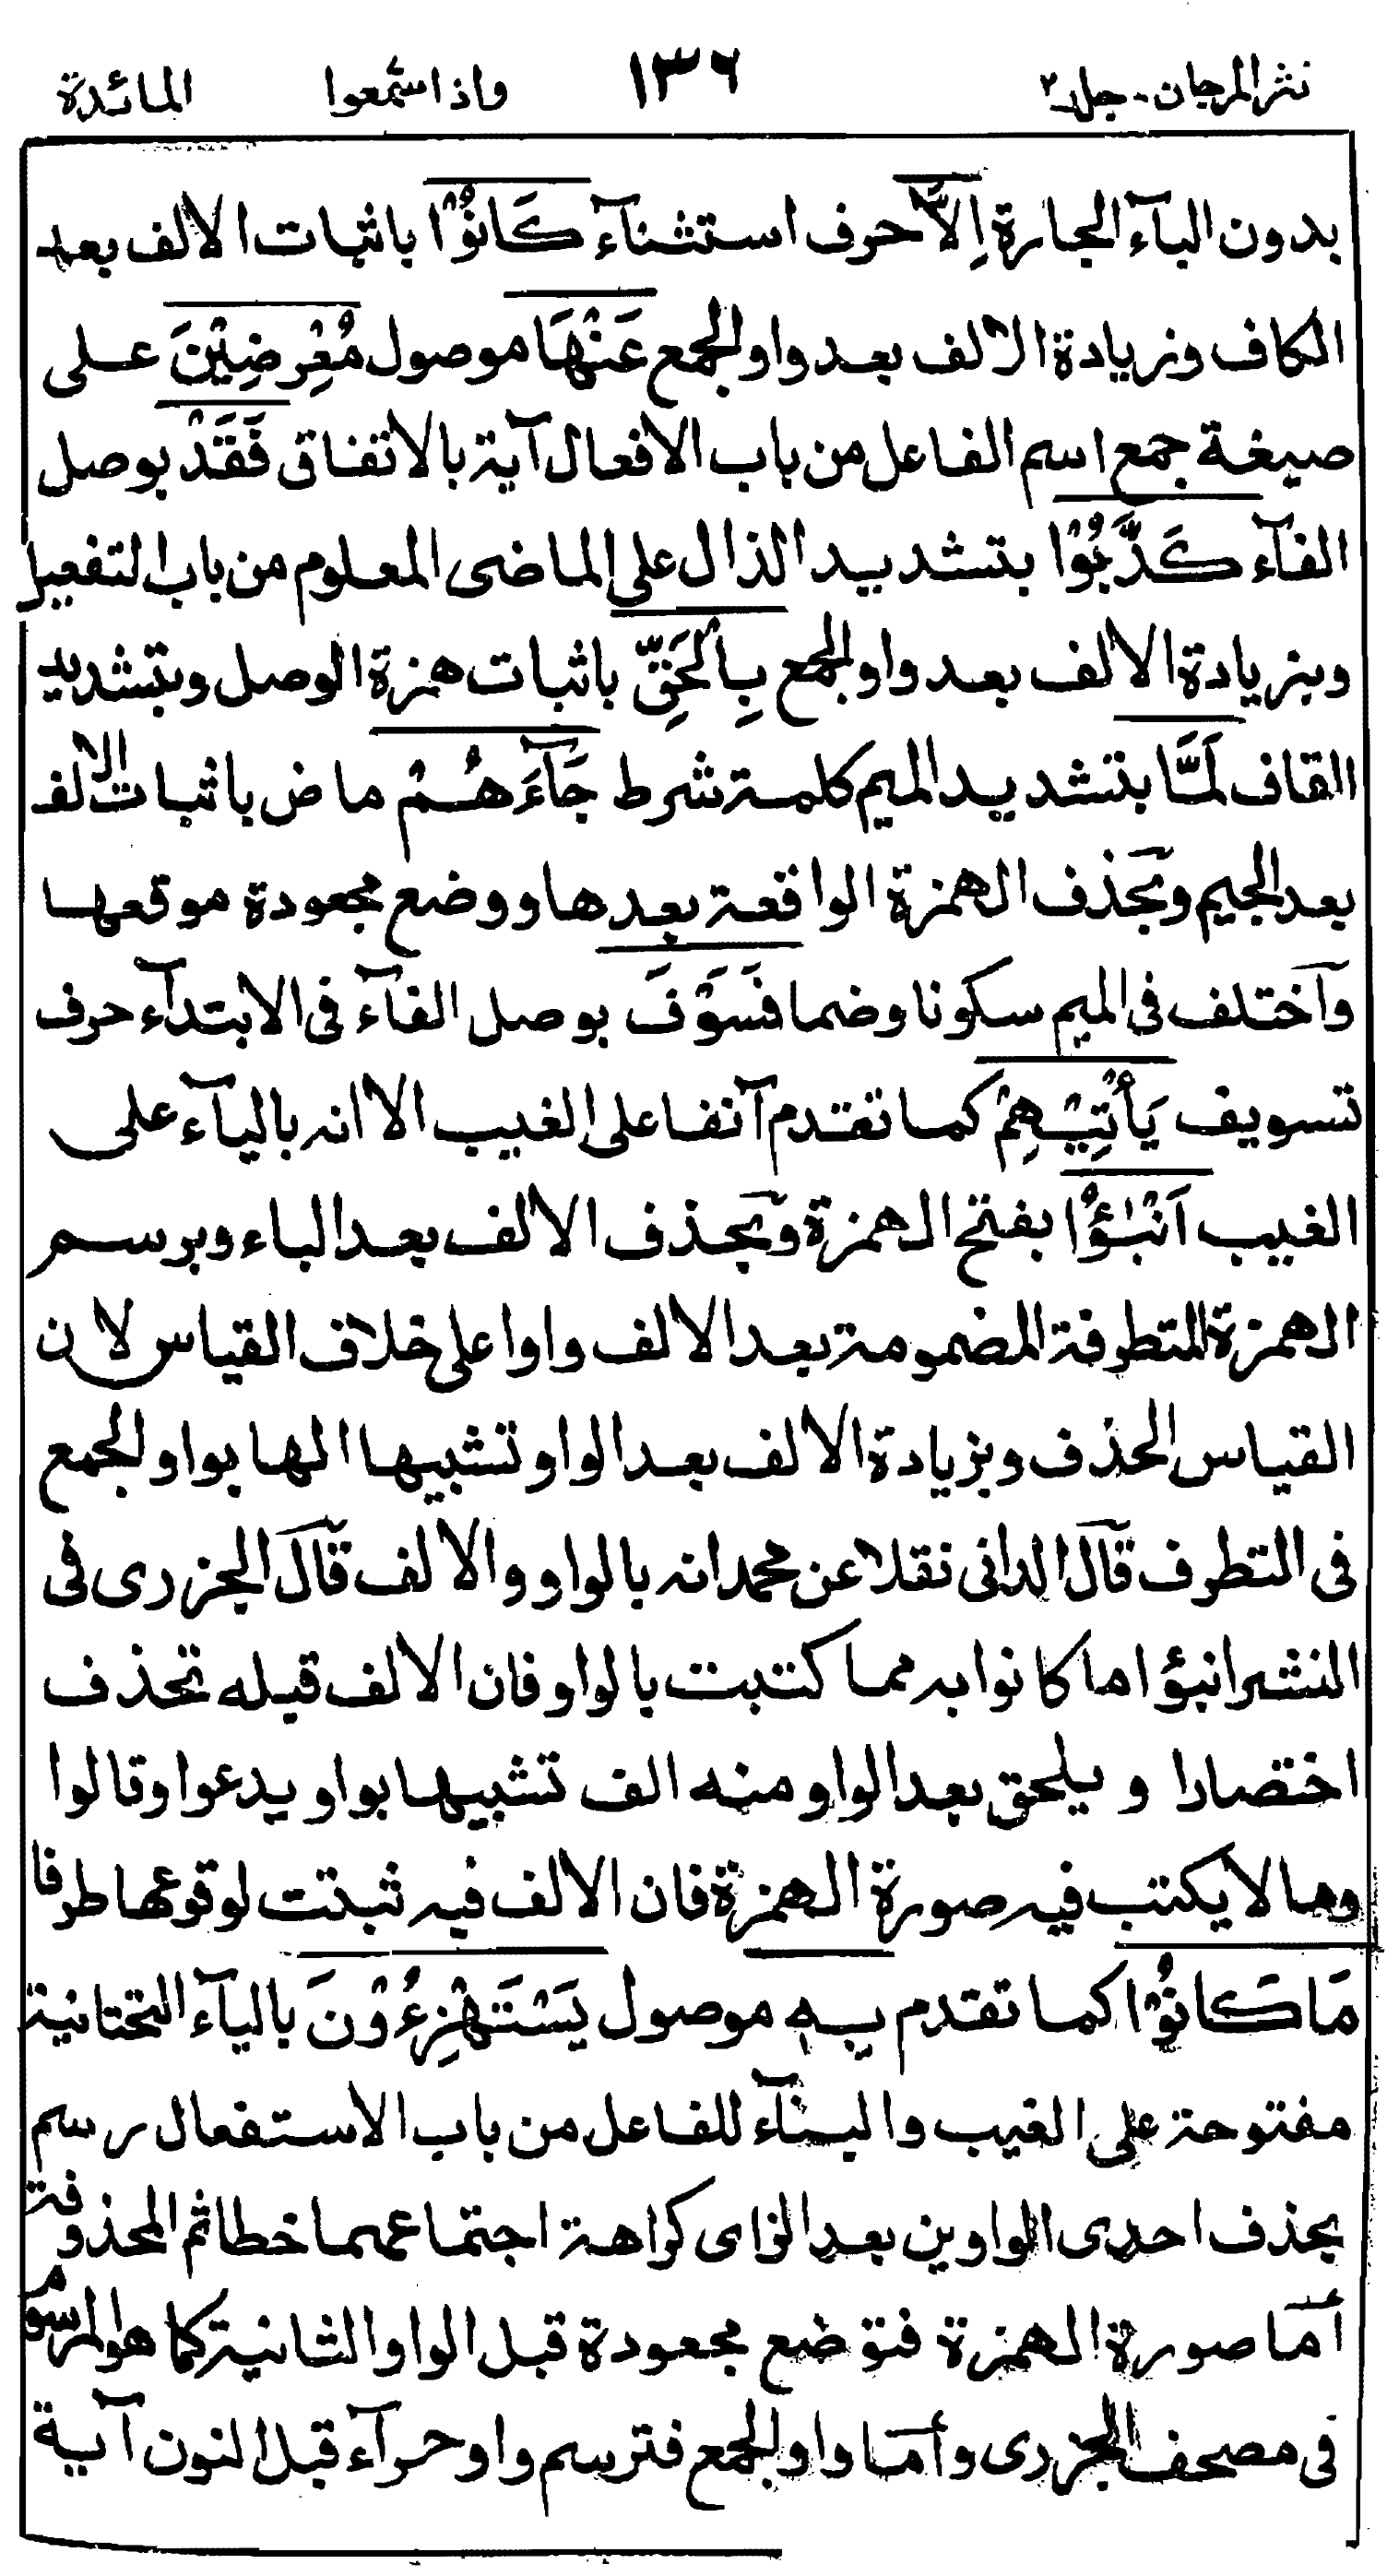 نثر المرجان - جلد ٢ ١٣٦ واذا سمعوا المائدة
بدون البآء الجارة اِلَّا حرف استثنآء كَانُوْا باثبات الالف بعد
الكاف وزيادة الالف بعد واو الجمع عَنْهَا موصول مُعْرِضِيْنَ على
صيغة جمع اسم الفاعل من باب الافعال آية بالاتفاق فَقَدْ بوصل
الفآء كَذَّبُوْا بتشديد الذال على الماضى المعلوم من باب التفعيل
وبزيادة الالف بعد واو الجمع بِالْحَقِّ باثبات همزة الوصل وبتشديد
القاف لَمَّا بتشديد الميم كلمة شرط جَآءَهُمْ ماض باثبات الالف
بعد الجيم وبحذف الهمزة الواقعة بعدها ووضع مجعودة موقعها
وآختلف فى الميم سكونا وضما فَسَوْفَ بوصل الفآء فى الابتدآء حرف
تسويف يَأْتِيْهِمْ كما تقدم آنفا على الغيب الا انه باليآء على
الغيب اَنْبٰؤُا بفتح الهمزة وبحذف الالف بعد الباء وبرسم
الهمزة المتطرفة المضمومة بعد الالف واوا على خلاف القياس لان
القياس الحذف وبزيادة الالف بعد الواو تشبيها الها بواو الجمع
فى التطرف قآل الدانى نقلا عن محمد انه بالواو والالف قآل الجزرى فى
النشر انبؤا ما كانوا به مما كتبت بالواو فان الالف قبله تحذف
اختصارا و يلحق بعد الواو منه الف تشبيها بواو يدعوا وقالوا
وما لا يكتب فيه صورة الهمزة فان الالف فيه ثبتت لوقوعها طرفا
مَا كَانُوْا كما تقدم بِهٖ موصول يَسْتَهْزِءُوْنَ باليآء التحتانية
مفتوحة على الغيب والبنآء للفاعل من باب الاستفعال رسم
بحذف احدى الواوين بعد الزاى كراهة اجتماعهما خطا ثم المحذوفة
أمّا صورة الهمزة فتوضع مجعودة قبل الواو الثانية كما هو المرسوم
فى مصحف الجزرى وأمّا واو الجمع فترسم واو حرآء قبل النون آية